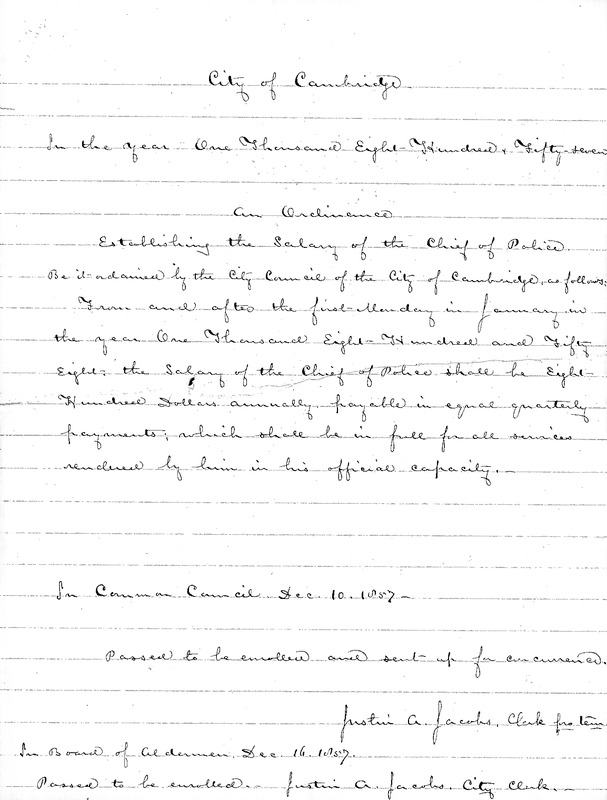 City of Cambridge
In the year One Thousand Eight Hundred & Fifty-seven
An Ordinance
Establishing the Salary of the Chief of Police.
Be it ordained by the City Council of the City of Cambridge, as follows:
From and after the first Monday in January in
the year One Thousand Eight Hundred and Fifty
Eight; the Salary of the Chief of Police shall be Eight
Hundred Dollars annually payable in equal quarterly
payments; which shall be in full for all services
rendered by him in his official capacity. –
In Common Council Dec. 10. 1857 –
Passed to be enrolled and sent up for concurrence.
Justin A. Jacobs, Clerk pro tem
In Board of Aldermen. Dec. 16. 1857.
Passed to be enrolled. – Justin A. Jacobs. City Clerk. –